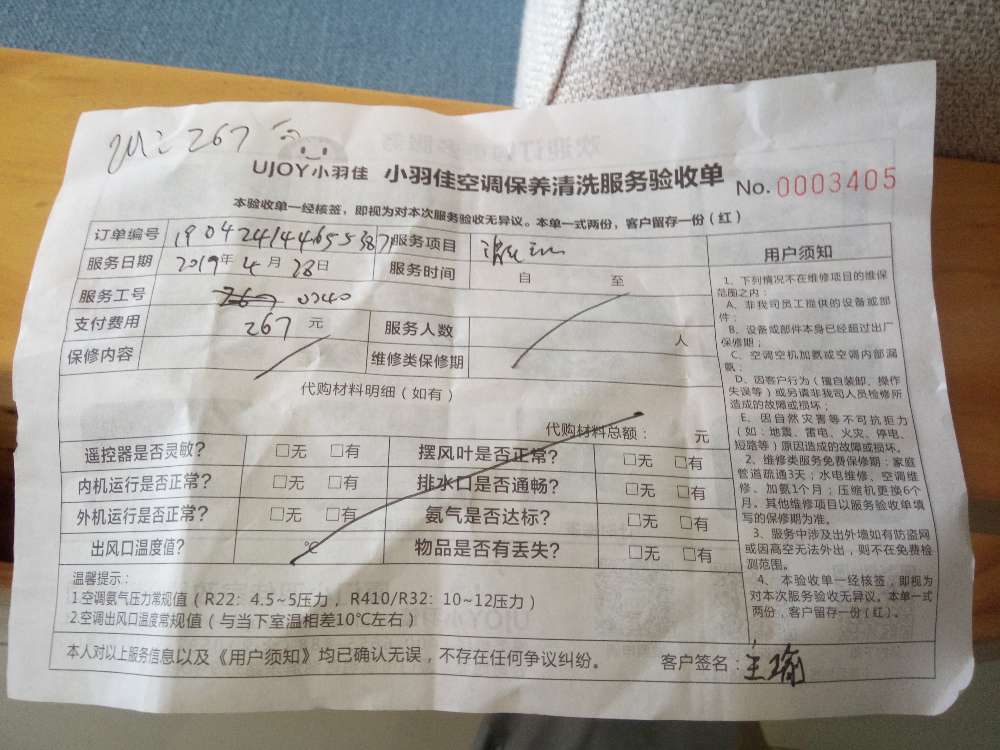 267
UJOY小羽佳 小羽佳空调保养清洗服务验收单 No. 0003405
本验收单一经核签，即视为对本次服务验收无异议。本单一式两份，客户留存一份（红）
订单编号 服务项目
服务日期 2019年 4月 28日 服务时间 自 至
服务工号 0740
支付费用 267 元 服务人数 人
保修内容 维修类保修期
代购材料明细（如有）
代购材料总额： 元
遥控器是否灵敏？ □无 □有 摆风叶是否正常？ □无 □有
内机运行是否正常？ □无 □有 排水口是否通畅？ □无 □有
外机运行是否正常？ □无 □有 氨气是否达标？ □无 □有
出风口温度值？ ℃ 物品是否有丢失？ □无 □有
温馨提示：
1.空调氨气压力常规值（R22：4.5~5压力，R410/R32：10~12压力）
2.空调出风口温度常规值（与当下室温相差10℃左右）
本人对以上服务信息以及《用户须知》均已确认无误，不存在任何争议纠纷。 客户签名：王瑜
用户须知
1、下列情况不在维修项目的维保
范围之内：
A、非我司员工提供的设备或部
件；
B、设备或部件本身已经超过出厂
保修期；
C、空调空机加氨或空调内部漏
氨；
D、因客户行为（擅自装卸、操作
失误等）或另请非我司人员检修所
造成的故障或损坏；
E、因自然灾害等不可抗拒力
（如：地震、雷电、火灾、停电、
短路等）原因造成的故障或损坏。
2、维修类服务免费保修期：家庭
管道疏通3天；水电维修、空调维
修、加氨1个月；压缩机更换6个
月。其他维修项目以服务验收单填
写的保修期为准。
3、服务中涉及出外墙如有防盗网
或因高空无法外出，则不在免费检
测范围。
4、本验收单一经核签，即视为
对本次服务验收无异议。本单一式
两份，客户留存一份（红）。